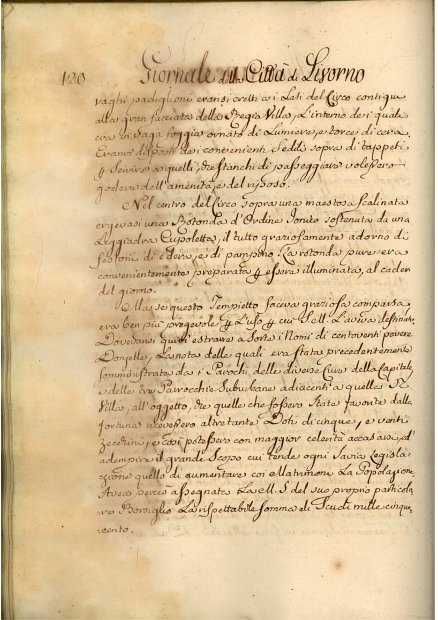 120 Giornale della Città di Livorno
vaghi padiglioni eransi eretti coi Lati del Circo contigui
alla gran facciata della Regia Villa, L'interno dei quali
era in vaga foggia ornato di Lumiere, e torce di cera.
Eranvi disposti dei convenienti Sedili sopra di tappeti
servire a quelli, che stanchi di passeggiare volessero
godere dell'amenità, e del riposo.
Nel centro del Circo sopra una maestosa scalinata
ergevasi una Rotonda d'Ordine Jonico sostenuta da una
Leggiadra Cupoletta, il tutto graziosamente adorno di
festoni di edera, e di pampino. La rotonda pure era
convenientemente preparata essere illuminata, al cader
del giorno.
Ma se questo Tempietto faceva graziosa comparsa
era ben più pregevole L'uso cui S. M. L'aveva destinato.
Dovevansi quivi estrarre a sorte i Nomi di centoventi povere
Donzelle, La nota delle quali era stata precedentemente
somministrata dai Parochi delle diverse Cure della Capitale,
e delle tre Parrocchie Suburbane adiacenti a quella R.
Villa, all'oggetto, che quelle che fossero state favorite dalla
fortuna ricevessero altrettante Doti di cinque, e venti
Zecchini, e così potessero con maggior celerità accasarsi, ed
adempire il grande Scopo cui tende ogni Savia Legisla-
zione quello di aumentare coi Matrimoni La Popolazione.
Avea perciò assegnata La M. S. del suo proprio particola-
re Borsiglio La rispettabile somma di Scudi mille cinque-
cento.